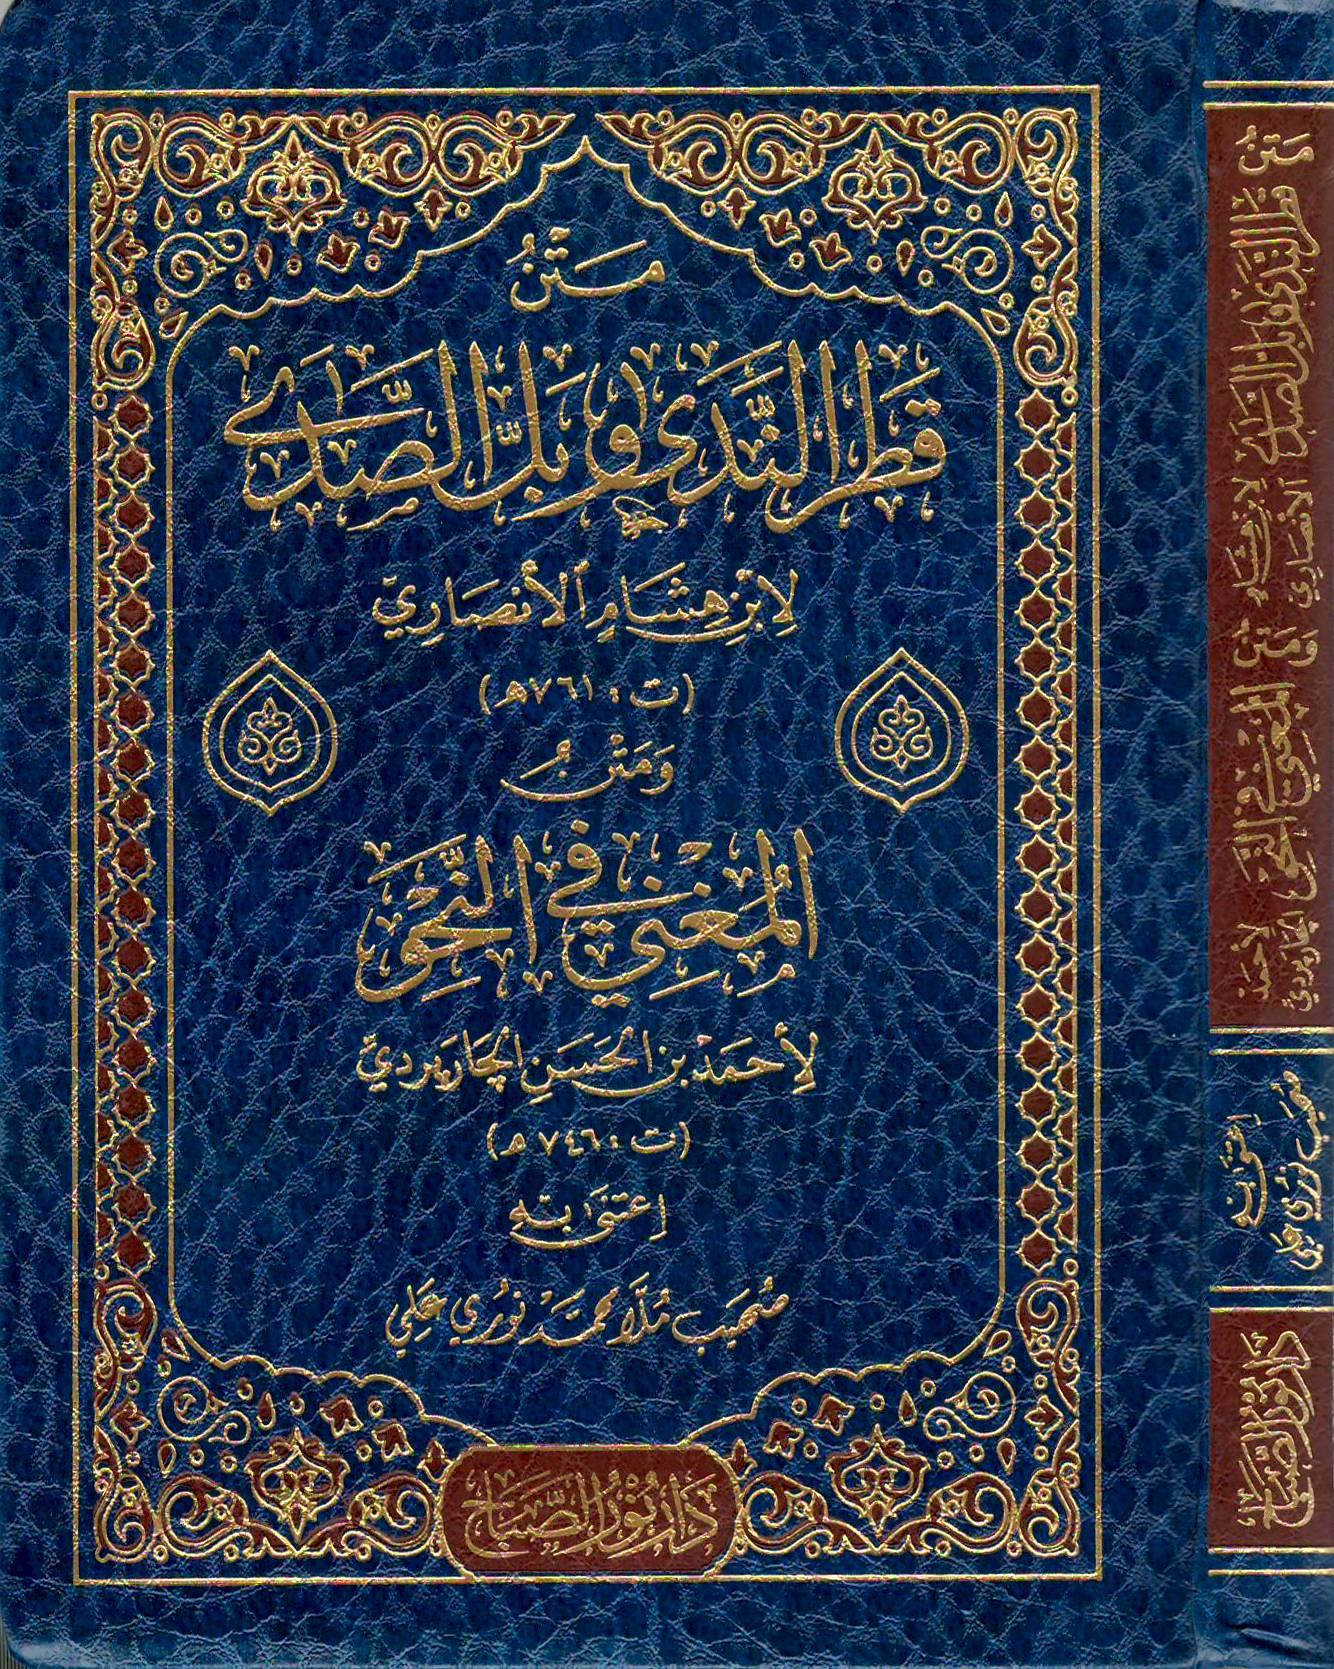 مَتْنُ
قَطْرِ النَّدَى وَبَلِّ الصَّدَى
لِابْنِ هِشَامٍ الْأَنْصَارِيِّ
(ت: ٧٦١هـ)
وَمَتْنُ
الْمُغْنِي فِي النَّحْوِ
لِأَحْمَدَ بْنِ الْحَسَنِ الْجَارَبَرْدِيِّ
(ت: ٧٤٦هـ)
اِعْتَنَى بِهِ
صُهَيْب مُلَّا مُحَمَّد نُورِي عَلِي
دَارُ نُورِ الصَّبَاحِ
مَتْنُ قَطْرِ النَّدَى وَبَلِّ الصَّدَى لِابْنِ هِشَامٍ الْأَنْصَارِي وَمَتْنُ الْمُغْنِي فِي النَّحْوِ لِأَحْمَدَ الْجَارَبَرْدِيِّ
اِعْتَنَى بِهِ
صُهَيْب نُورِي عَلِي
دَارُ نُورِ الصَّبَاحِ